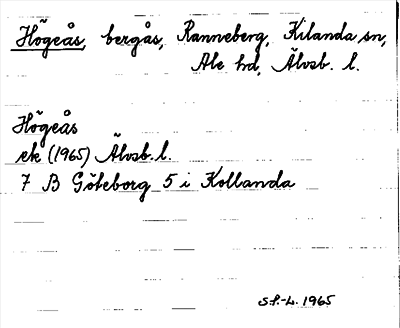 Högeås, bergås, Ranneberg, Kilanda sn,
Ale hd, Älvsb. l.
Högeås
ek (1965) Älvsb. l.
7 B Göteborg 5 i Kollanda
S.F.-L. 1965